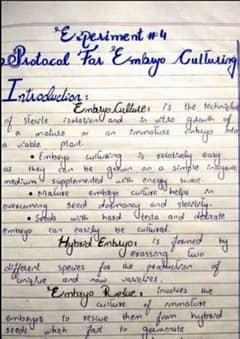 "Experiment #4
Protocol For "Embryo Culturing
Introduction:
Embryo Culture: is the technique
of sterile isolation and in vitro growth of
a mature or an immature embryo into
a viable plant.
• Embryo culturing is relatively easy
as they can be grown on a simple inorganic
medium supplemented with energy source.
• Mature embryo culture helps in
overcoming seed dormancy and sterility.
• Seeds with hard testa and delicate
embryo can easily be cultured.
Hybrid Embryo: is formed by
crossing two
different species for the production of
unique and new varieties.
Embryo Rescue: involves the
culture of immature
embryos to rescue them from hybrid
seeds which fail to germinate